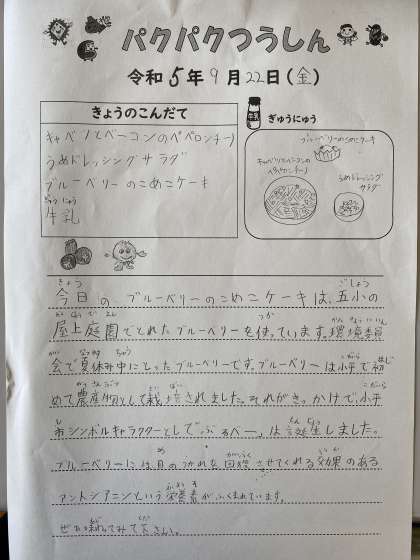 パクパクつうしん
令和5年9月22日(金)
きょうのこんだて
キャベツとベーコンのペペロンチーノ
うめドレッシングサラダ
ブルーベリーのこめこケーキ
ぎゅうにゅう
牛乳
牛乳
ぎゅうにゅう
ブルーベリーのこめこケーキ
キャベツとベーコンの
ペペロンチーノ
うめドレッシング
サラダ
今日の、ブルーベリーのこめこケーキは、五小の
屋上庭園でとれたブルーベリーを使っています。環境委員
会で夏休み中にとったブルーベリーです。ブルーベリーは小平で初
めて農産物として栽培されました。それがきっかけで、小平
市シンボルキャラクターとして「ぶるべー」は誕生しました。
ブルーベリーには、目のつかれを回復させてくれる効果のある
アントシアニンという栄養素がふくまれています。
ぜひ味わってみて下さい。